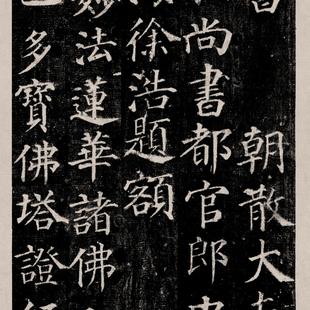 朝散大
尚書都官郎
徐浩題額
妙法蓮華諸佛
多寶佛塔證